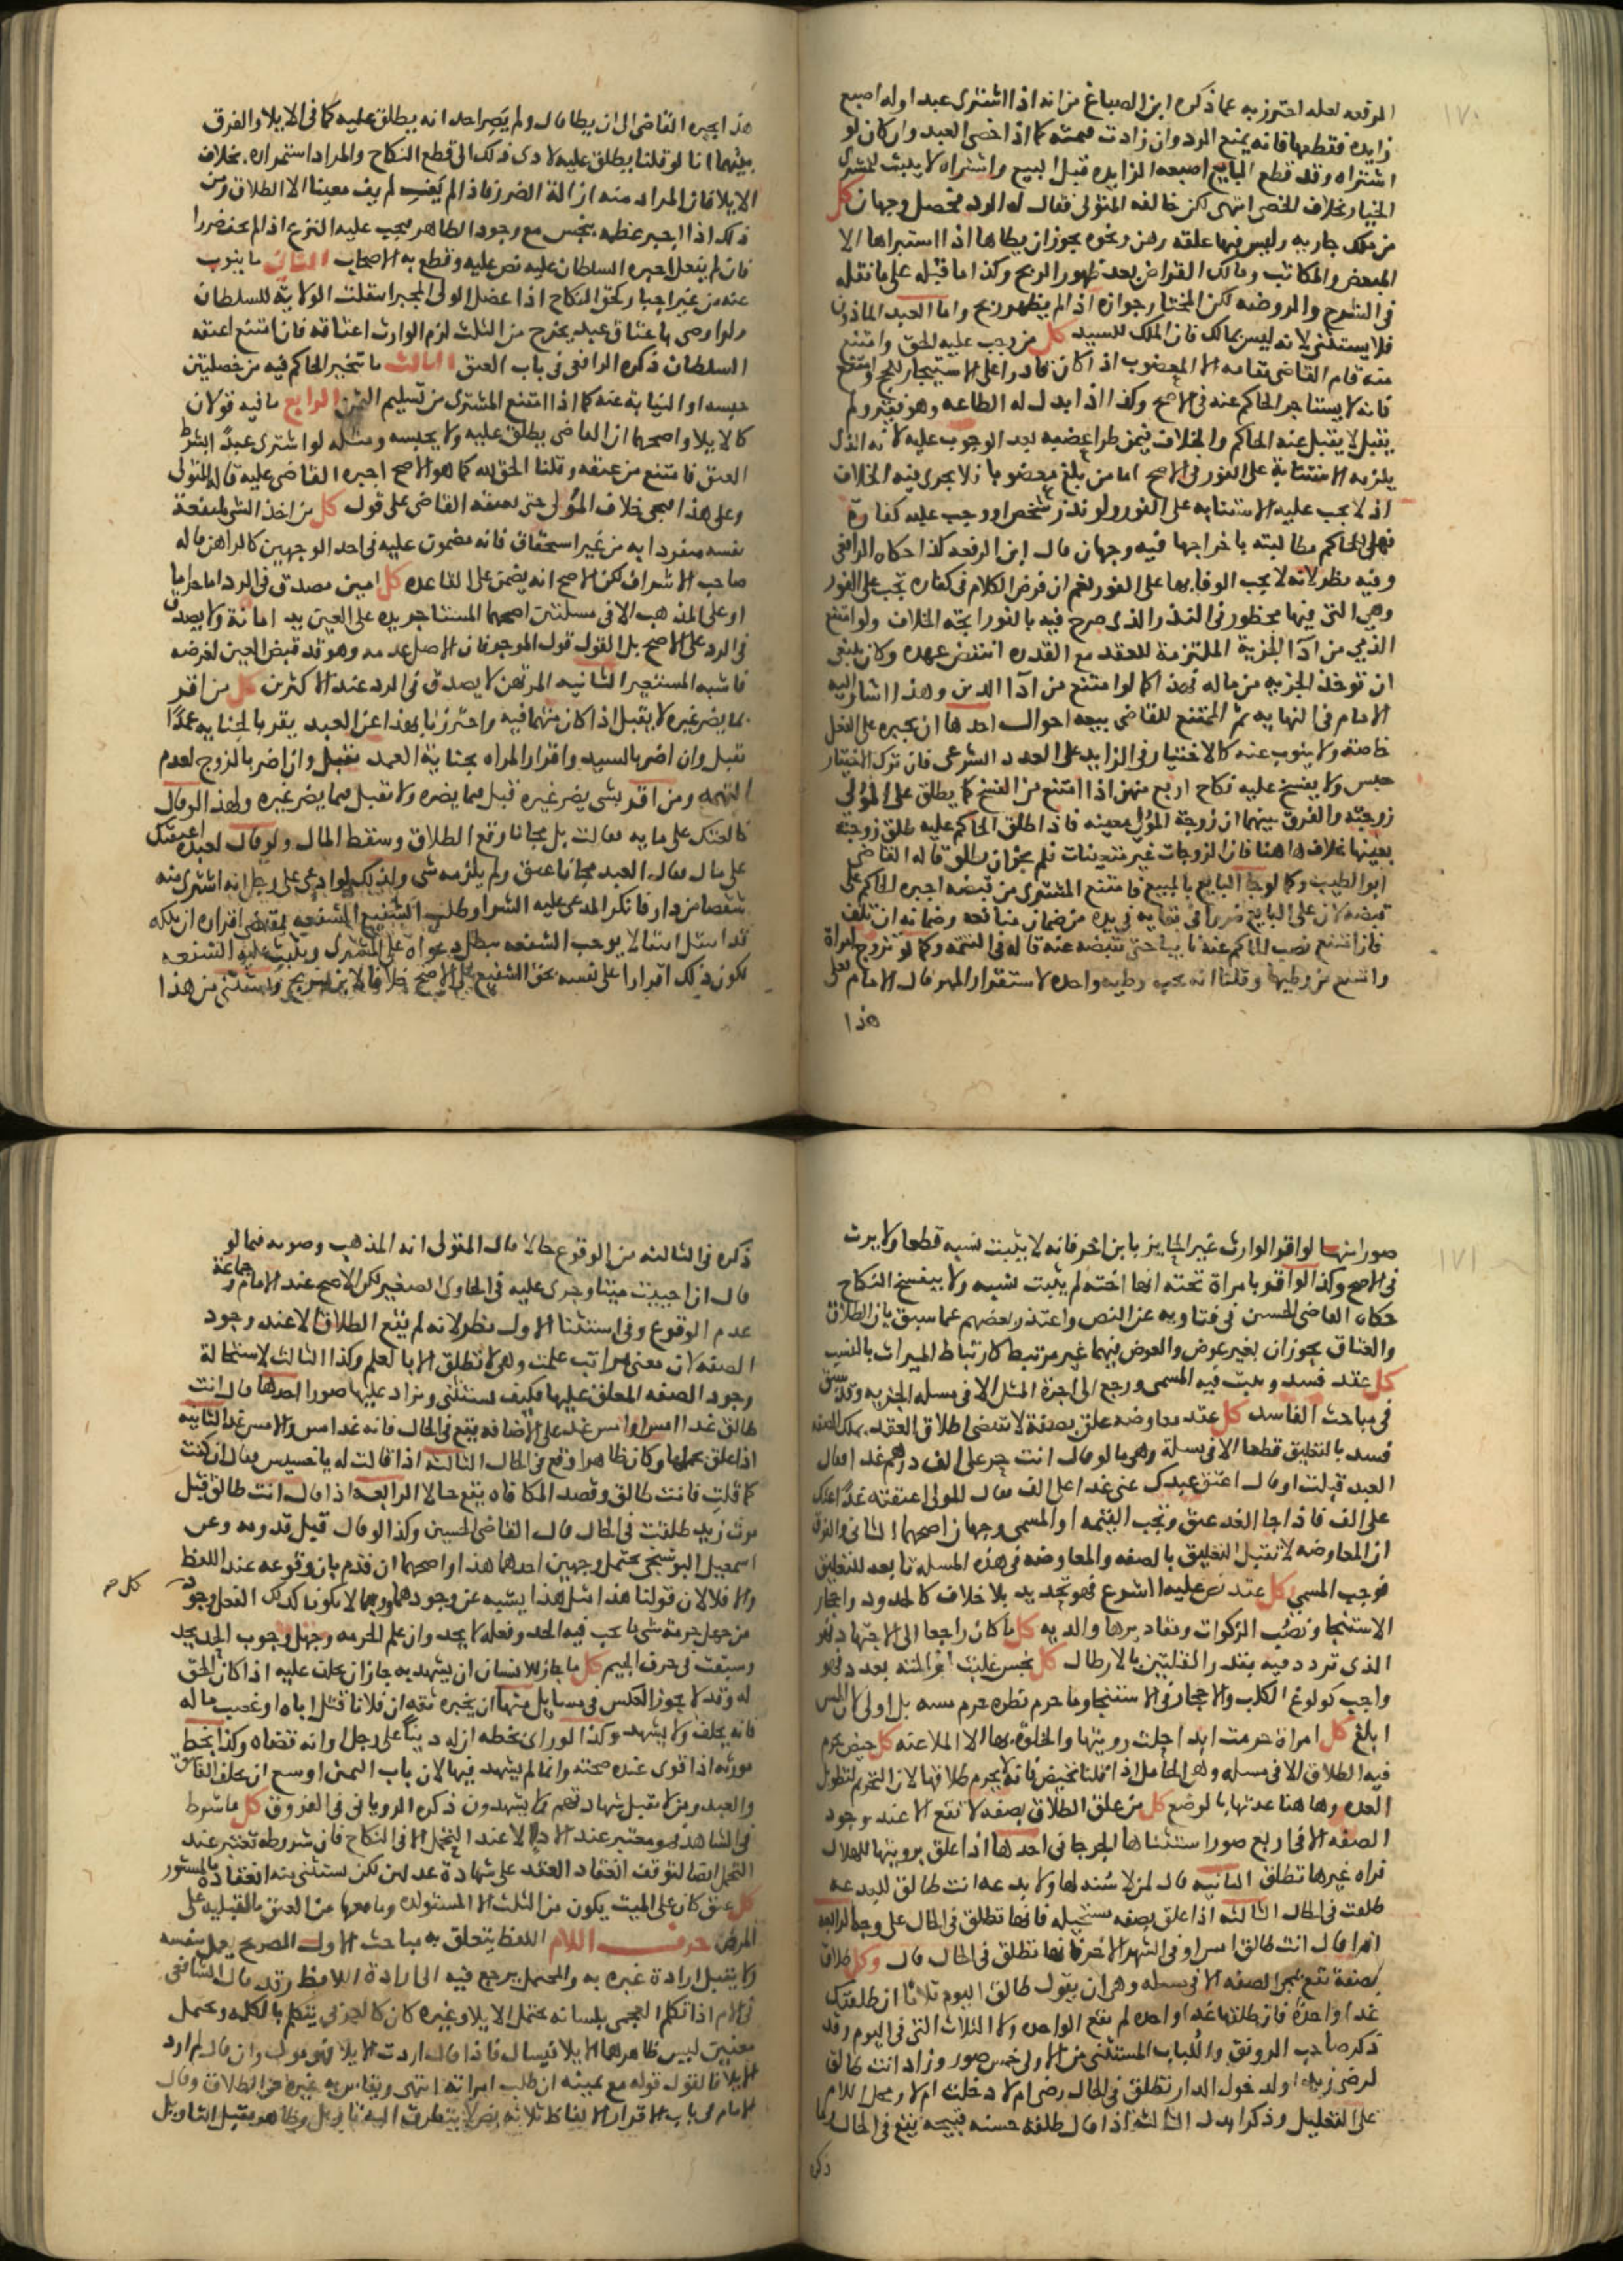 ١٧٠
الرفعه لعله احترز به عما ذكره ابن الصباغ من انه اذا اشترى عبدا وله اصبع
زايده فقطعها فانه يمنع الرد وان زادت قيمته كما اذا خصى العبد وان كان لو
اشتراه وقد قطع البايع اصبعه الزايده قبل البيع واشتراه لا يثبت للمشترى
الخيار بخلاف الخصى انتهى لكن خالفه المتولى فقال له الرد فحصل وجهان كل
من ملك جاريه وليس فيها علقه رهن ونحوه يجوز ان يطاها اذا استبراها الا
المبعض والمكاتب ومالك القراض بعد ظهور الربح وكذا ما قبله على ما نقله
فى الشرح والروضه لكن المختار جوازه اذا لم يظهر ربح واما العبد الماذون
فلا يستثنى لانه ليس بمالك فان الملك للسيد كل من وجب عليه الحق وامتنع
منه قام القاضى مقامه الا المعضوب اذا كان قادرا على الاستيجار للحج وامتنع
فانه لا يستاجر الحاكم عنه فى الاصح وكذا اذا بدل له الطاعه وهو فقير ولم
يقبل لا يقبل عنه الحاكم والخلاف فيمن طرا عضبه بعد الوجوب عليه لانه الذى
يلزمه الاستنابة على الفور فى الاصح اما من بلغ معضوبا فلا يجرى فيه الخلاف
اذ لا يجب عليه الاستنابه على الفور ولو نذر شخص او وجب عليه كفارة
فهل للحاكم مطالبته باخراجها فيه وجهان قال ابن الرفعه كذا حكاه الرافعى
وفيه نظر لانه لا يجب الوفا بها على الفور نعم ان فرض الكلام فى كفاره تجب على الفور
وهى التى فيها محظور فى النذر الذى صرح فيه بالفور اتجه الخلاف ولو امتنع
الذمي من آدآ الجزية الملتزمة للعقد مع القدره انتقض عهده وكان ينبغى
ان توخذ الجزيه من ماله قهذا كما لو امتنع من آدآ الدين وهذا اشار اليه
الامام فى النهايه ثم الممتنع للقاضى بيعه احوال احدها ان يجبره على الفعل
خاصته ولا ينوب عنه كالاختيار فى الزايد على العدد الشرعى فان ترك الاختيار
حبس ولا يفسخ عليه نكاح اربع منهن اذا امتنع من الفسخ كما يطلق على المؤلى
زوجته والفرق بينهما ان زوجة المؤلى معينه فاذا طلق الحاكم عليه طلق زوجته
بعينها بخلاف هاهنا فان الزوجات غير متعينات فلم يجز ان يطلق قاله القاضى
ابو الطيب وكما لو جا البايع بالمبيع فامتنع المشترى من قبضه اجبره الحاكم على
قبضه لان على البايع ضررا فى بقايه فى يده من ضمان منافعه وضمانه ان تلف
فان امتنع نصب الحاكم عنه نايبا حتى يقبضه عنه قاله فى التتمه وكما لو تزوج امراة
وامتنع من وطيها وقلنا انه يجب وطيه واحده لاستقرار المهر قال الامام فعلى
هذا
هذا يجبره القاضى الى ان يطا قال ولم يصر احد انه يطلق عليه كما فى الايلاء والفرق
بينهما انا لو قلنا يطلق عليه لادى ذلك الى قطع النكاح والمراد استمراره بخلاف
الايلا فان المراد منه ازالة الضرر فاذا لم يفئ لم يبق معينا الا الطلاق ومن
ذلك اذا جبر عظمه بنجس مع وجود الطاهر فيجب عليه النزع اذا لم يخف ضررا
فان لم يفعل اجبره السلطان عليه نص عليه وقطع به الاصحاب الثانى ما ينوب
عنه من غير اجبار كحق النكاح اذا عضل الولى المجبر انتقلت الولاية للسلطان
ولو اوصى باعتاق عبد يخرج من الثلث لزم الوارث اعتاقه فان امتنع اعتقه
السلطان ذكره الرافعى فى باب العتق الثالث ما يتخير الحاكم فيه من خصلتين
حبسه او النيابة عنه كما اذا امتنع المشترى من تسليم الثمن الرابع ما فيه قولان
كالايلا واصحهما ان القاضى يطلق عليه ولا يحبسه ومثله لو اشترى عبدا بشرط
العتق فامتنع من عتقه وقلنا الحق لله كما هو الاصح اجبره القاضى عليه قاله المتولى
وعلى هذا فيجى خلاف المؤلى حتى يعتقه القاضى على قول كل من اخذ الشى لمنفعة
نفسه منفردا به من غير استحقاق فانه مضمون عليه فى احد الوجهين كالراهن ماله
صاحب الاشراف لكن الاصح انه يضمن على القاعده كل امين مصدق فى الرد
او على المذهب الا فى مسئلتين اصحهما المستاجر يده على العين يد امانة ولا يصدق
فى الرد على الاصح بل القول قول الموجر فان الاصل عدمه وهو قد قبض العين لغرضه
فاشبه المستعير الثانيه المرتهن لا يصدق فى الرد عند الاكثرين كل من اقر
بما يضر غيره لا يقبل اذا كان متهما فيه واحترزنا بهذا عن العبد يقر بالجنايه عمدا
تقبل وان اضر بالسيد واقرار المراه بجناية العمد تقبل وان اضر بالزوج لعدم
التهمه ومن اقر بشى يضر غيره قبل فيما يضره ولا تقبل فيما يضر غيره ولهذا لو قال
خالعتك على مايه فقالت بل مجانا وقع الطلاق وسقط المال ولو قال لعبده اعتقتك
على مال فقال العبد مجانا عتق ولم يلزمه شى ولذلك لو ادعى على رجل انه اشترى منه
شقصا من دار فانكر المدعى عليه الشرا وطلب الشفيع الشفعه بمقتضى اقراره ان ملكه
قد انتقل انتقالا يوجب الشفعه بطل دعواه على المشترى ويثبت عليه الشفعه
لكون ذلك اقرارا على نفسه بحق الشفيع على الاصح خلافا لابن سريج واستثنى من هذا
١٧١
صورا منها لو اقر الوارث غير الحايز بابن اخر فانه لا يثبت نسبه قطعا ولا يرث
فى الاصح وكذا لو اقر بامراة تحته انها اخته لم يثبت نسبه ولا ينفسخ النكاح
حكاه القاضى الحسين فى فتاويه عن النص واعتذر بعضهم عما سبق بان الطلاق
والعتاق يجوزان بغير عوض والعوض فيهما غير مرتبط كارتباط الميراث بالنسب
كل عقد فسد وبطلت فيه المسمى ورجع الى اجرة المثل الا فى مسله الجزيه وقد سبق
فى مباحث الفاسد كل عقد معاوضه علق بصفة لا تقتضى اطلاق العقد
فسد بالتعليق قطعا الا فى مسلة وهى ما لو قال انت حر على الف درهم غدا فقال
العبد قبلت او قال اعتق عبدك عنى غدا على الف فقال المولى اعتقته غدا عنك
على الف فاذا جا الغد عتق وتجب القيمه او المسمى وجهان اصحهما الثانى والفرق
ان المعاوضه لا تقبل التعليق بالصفه والمعاوضه فى هذه المسله تابعه للتعليق
فوجب المسمى كل عقد نص عليه الشرع فهو تحديد بلا خلاف كالحدود واحجار
الاستنجا ونصب الزكوات ومقاديرها والديه كل ما كان راجعا الى الاجتهاد فهو
الذى تردد فيه بقدر القلتين بالارطال كل نجس غلبت
واجب كولوغ الكلب والاحجار فى الاستنجا وما حرم نظره حرم مسه بل اولى لان المس
ابلغ كل امراة حرمت ابدا حلت رويتها والخلوه بها الا الملاعنه كل حيض يحرم
فيه الطلاق الا فى مسله وهى الحامل اذا قلنا تحيض فانه لا يحرم طلاقها لان التحريم لتطويل
العده وها هنا عدتها بالوضع كل من علق الطلاق بصفه لا تقع الا عند وجود
الصفه الا فى اربع صور استثناها الجرجانى احدها اذا علق برويتها للهلال
فراه غيرها تطلق الثانيه قال لمن لا سنه لها ولا بدعه انت طالق للبدعه
طلقت فى الحال الثالثه اذا علق بصفه مستحيله فانها تطلق فى الحال على وجه الرابعه
اذا قال انت طالق امس او فى الشهر الاخر فانها تطلق فى الحال قال وكل طلاق
بصفة تقع بمجى الصفه الا فى مسله وهى ان يقول طالق اليوم ثلاثا ان طلقتك
غدا واحدة فان طلقها غدا واحده لم تقع الواحده ولا الثلاث التى فى اليوم وقد
ذكر صاحب الرونق واللباب المستثنى من الاولى خمس صور وزاد انت طالق
لرضى زيد او لدخول الدار تطلق فى الحال رضى ام لا دخلت ام لا ومحل اللام
على التعليل وذكرا بدل الثالثه اذا قال طلقة حسنه قبيحه يقع فى الحال
ذكره
ذكره فى الثالثه من الوقوع حالا قال المتولى انه المذهب وصوره فيما لو
قال ان احييت ميتا وجرى عليه فى الحاوى الصغير لكن الاصح عند الامام وجماعة
عدم الوقوع وفى استثنا الاول نظر لانه لم يقع الطلاق الا عند وجود
الصفه لان معنى رات علمت وهى لا تطلق الا بالعلم وكذا الثالث لاستحالة
وجود الصفه المعلق عليها فكيف يستثنى ويزاد عليها صور احدها قال انت
طالق غدا امس او امس غد على الاضافه يقع فى الحال فانه غد امس والامس غد الثانيه
اذا علق بحملها وكان ظاهرا وقع فى الحال الثالثه اذا قالت له يا خسيس فقال ان كنت
كما قلت فانت طالق وقصد المكافاه يقع حالا الرابعه اذا قال انت طالق قبل
موت زيد طلقت فى الحال قال القاضى الحسين وكذا لو قال قبل قدومه وعن
اسمعيل البوشنجى يحتمل وجهين احدهما هذا واصحهما ان قدم بان وقوعه عند اللفظ
والا فلا لان قولنا هذا مثل هذا يشبه عن وجودهما وربما لا يكون كذلك الفعل وجود
كل من جهل حرمة شى مما يجب فيه الحد وفعله لا يحد وان علم الحرمه وجهل وجوب الحد يحد
وسبقت فى حرف الجيم كل ما جاز للانسان ان يشهد به جاز ان يحلف عليه اذا كان الحق
له وقد لا يجوز العكس فى مسايل منها ان يخبره ثقه ان فلانا قتل اباه او غصب ماله
فانه يحلف ولا يشهد وكذا لو راى بخطه ان له دينا على رجل او انه قضاه وكذا بخط
مورثه اذا قوى عنده صحته وانما لم يشهد فيها لان باب اليمين اوسع اذ يحلف الفاسق
والعبد ومن لا تقبل شهادتهم ولا يشهدون ذكره الرويانى فى الفروق كل ما شرط
فى الشاهد فهو معتبر عند الادا لا عند التحمل الا فى النكاح فان شروطه تعتبر عند
التحمل ايضا لتوقف انعقاد العقد على شهادة عدلين لكن يستثنى منه انعقاده بالمستور
كل عتق كان على الميت يكون من الثلث الا المستولده
المرض حرف اللام اللفظ يتعلق به مباحث الاول الصريح يعمل بنفسه
ولا يقبل ارادة غيره به والمحتمل يرجع فيه الى ارادة اللافظ وقد قال الشافعى
فى الام اذا تكلم العجمى بلسانه يحتمل الايلا وغيره كان كالعربى يتكلم بالكلمه ويحتمل
معنيين ليس ظاهرها الايلا فيسال فاذا قال اردت الايلا فهو مول وان قال لم ارد
الايلا فالقول قوله مع يمينه ان طلب امراته انتهى ويقاس به غيره من الطلاق وقال
الامام فى باب الاقرار الالفاظ ثلاثه نص لا يتطرق اليه تاويل وظاهر يقبل التاويل